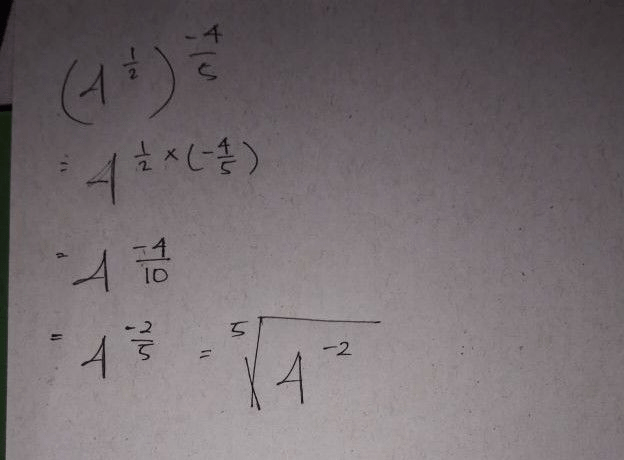 (4^{\frac{1}{2}})^{\frac{-4}{5}}
= 4^{\frac{1}{2} × (-\frac{4}{5})}
= 4^{\frac{-4}{10}}
= 4^{\frac{-2}{5}} = \sqrt[5]{4^{-2}}